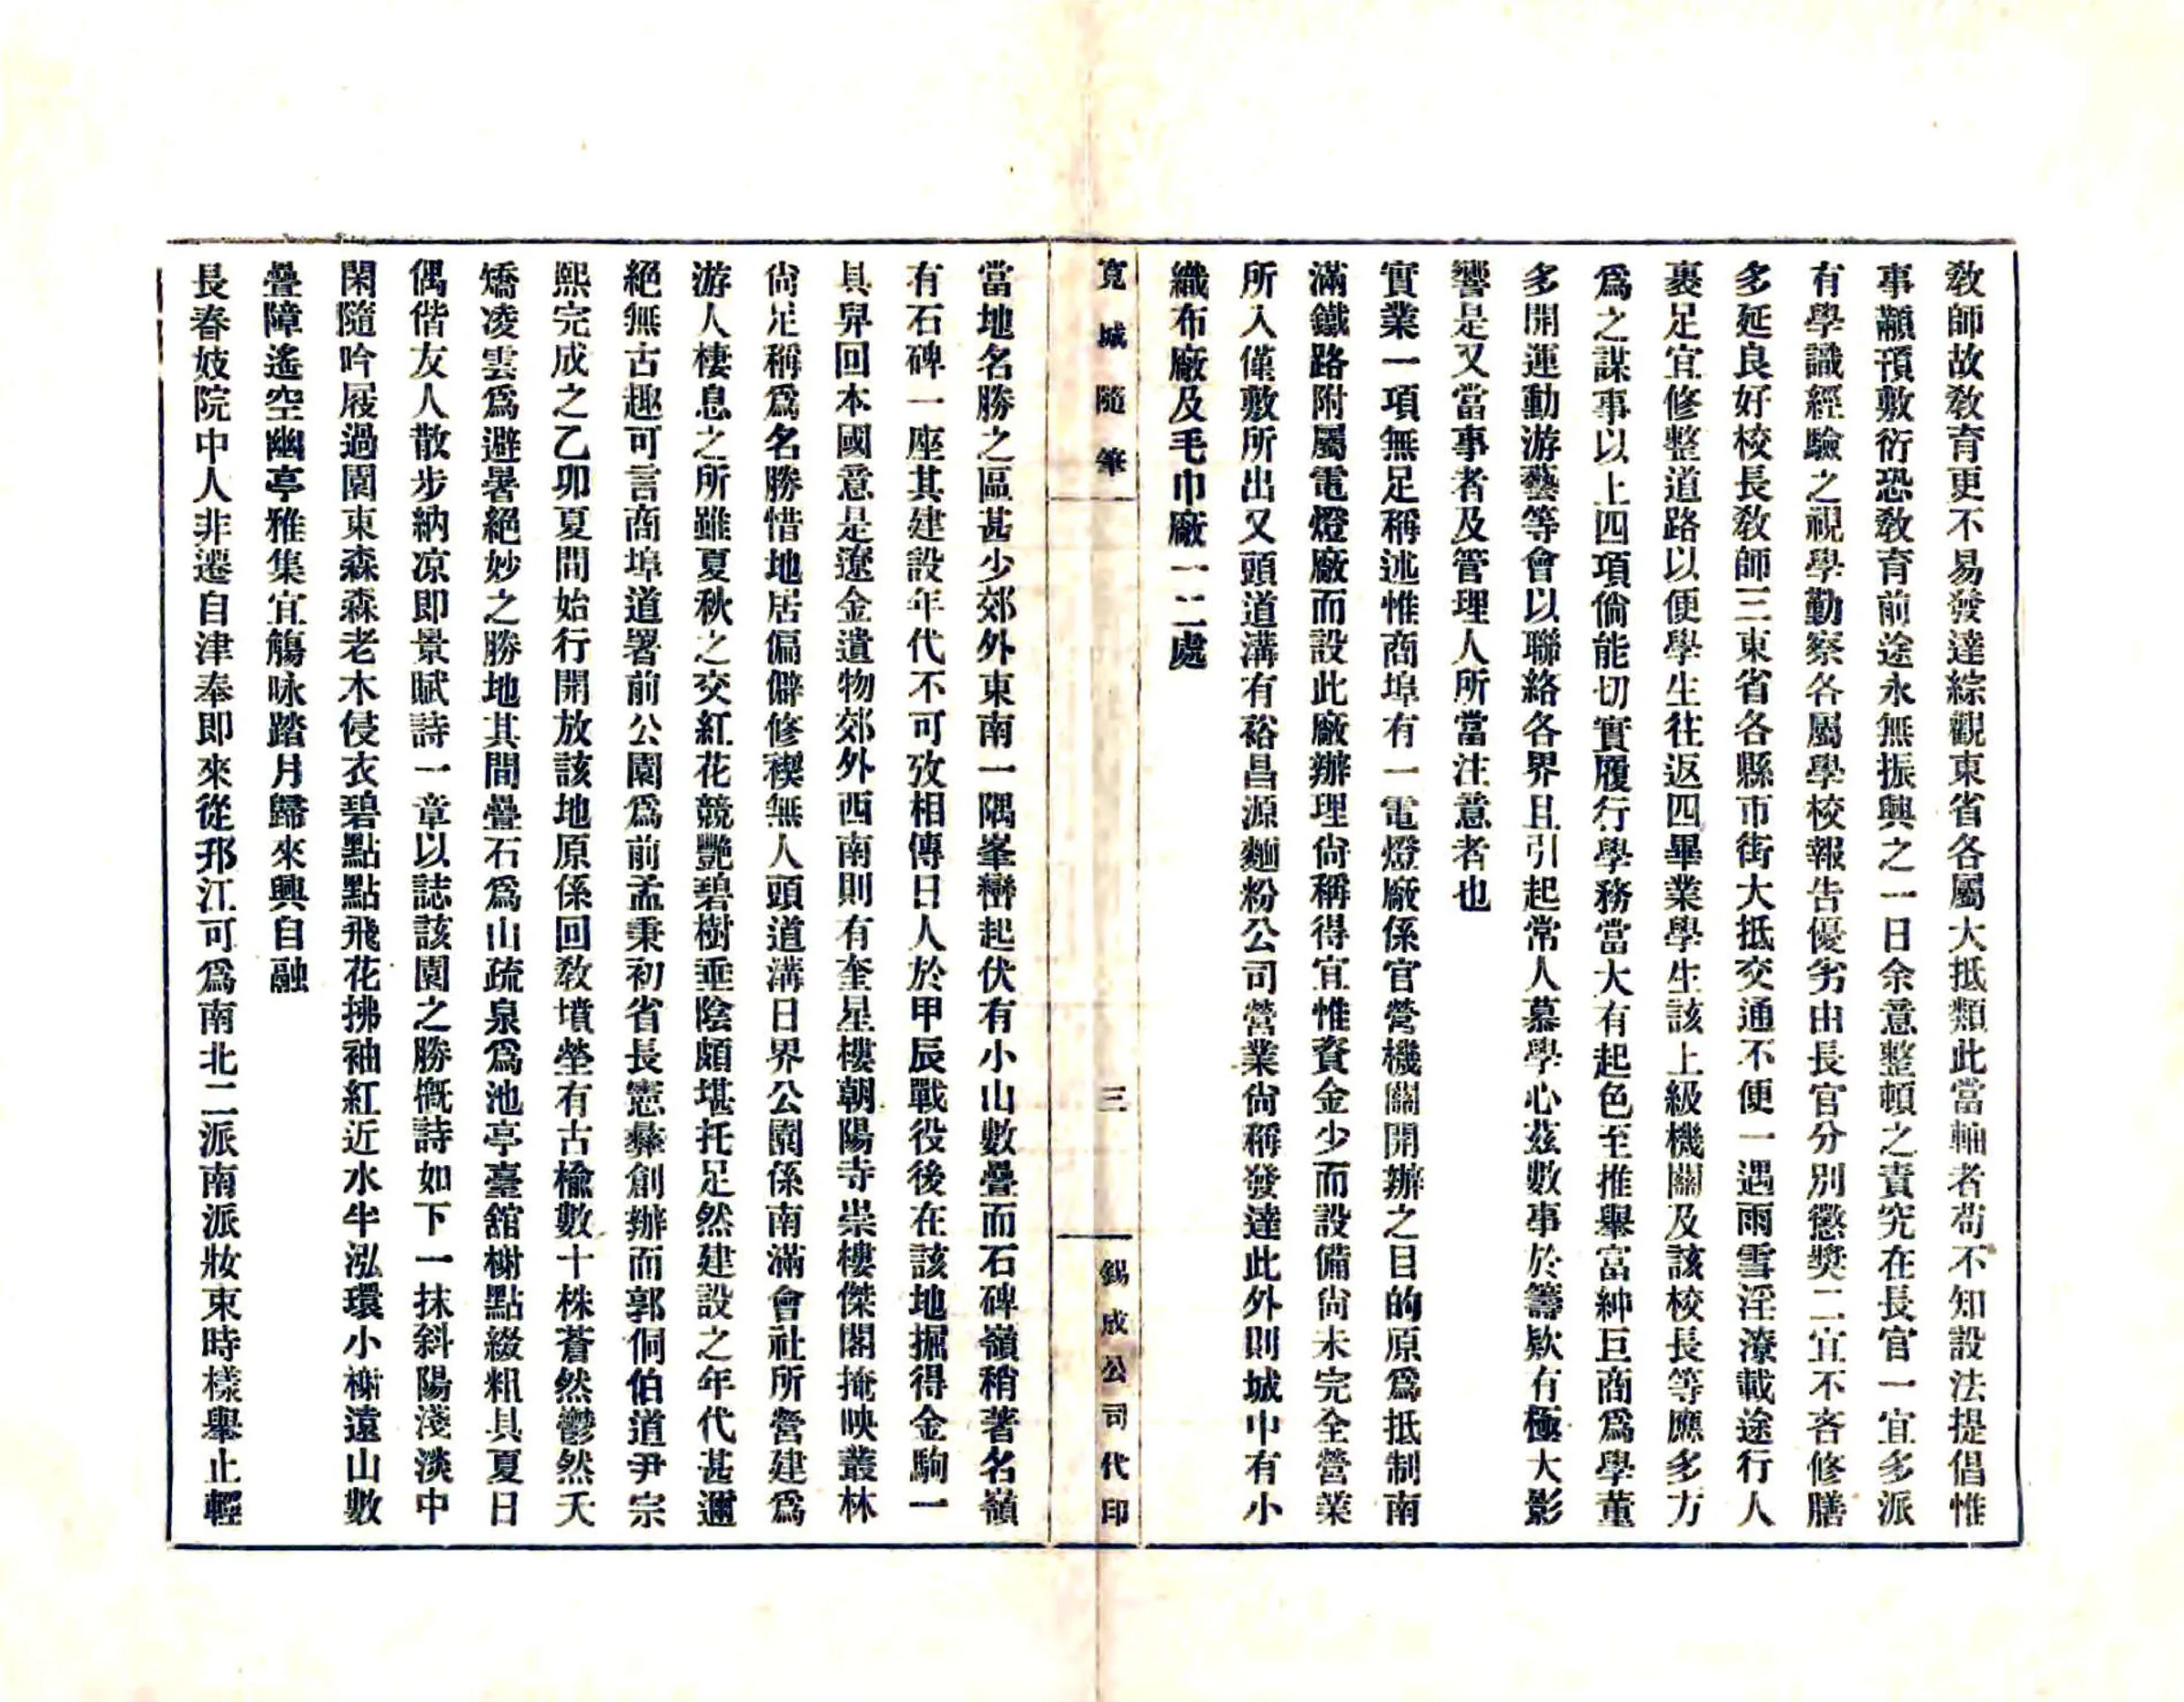 教師故教育更不易發達綜觀東省各屬大抵類此當軸者苟不知設法提倡惟
事顢頇敷衍恐教育前途永無振興之一日余意整頓之責究在長官一宜多派
有學識經驗之視學勤察各屬學校報告優劣由長官分別懲奬二宜不吝修膳
多延良好校長教師三東省各縣市街大抵交通不便一遇雨雪淫潦載途行人
裹足宜修整道路以便學生往返四畢業學生該上級機關及該校長等應多方
爲之謀事以上四項倘能切實履行學務當大有起色至推舉富紳巨商爲學董
多開運動游藝等會以聯絡各界且引起常人慕學心茲數事於籌欵有極大影
響是又當事者及管理人所當注意者也
實業一項無足稱述惟商埠有一電燈廠係官營機關開辦之目的原爲抵制南
滿鐵路附屬電燈廠而設此廠辦理尙稱得宜惟資金少而設備尙未完全營業
所入僅敷所出又頭道溝有裕昌源麵粉公司營業尙稱發達此外則城巾有小
織布廠及毛巾廠一二處
寬城隨筆
三
錫成公司代印
當地名勝之區甚少郊外東南一隅峯巒起伏有小山數疊而石碑嶺稍著名嶺
有石碑一座其建設年代不可攷相傳日人於甲辰戰役後在該地掘得金駒一
具舁回本國意是遼金遺物郊外西南則有奎星樓朝陽寺崇樓傑閣掩映叢林
尙足稱爲名勝惜地居偏僻修禊無人頭道溝日界公園係南滿會社所營建爲
游人棲息之所雖夏秋之交紅花競艷碧樹垂陰頗堪托足然建設之年代甚邇
絕無古趣可言商埠道署前公園爲前孟秉初省長憲彝創辦而郭侗伯道尹宗
熙完成之乙卯夏間始行開放該地原係回教墳塋有古楡數十株蒼然鬱然天
矯凌雲爲避暑絕妙之勝地其間疊石爲山疏泉爲池亭臺舘榭點綴粗具夏日
偶偕友人散步納凉即景賦詩一章以誌該園之勝槪詩如下一抹斜陽淺淡中
閑隨吟屐過園東森森老木侵衣碧點點飛花拂袖紅近水半泓環小榭遠山數
疊障遙空幽亭雅集宜觴咏踏月歸來興自融
長春妓院中人非遷自津奉即來從邘江可爲南北二派南派妝束時樣舉止輕